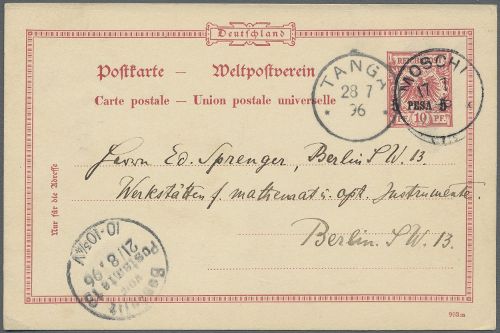 Deutschland
Postkarte — Weltpostverein
Carte postale — Union postale universelle
TANGA
28 7
96
MOSCHI
17 7
5 PESA 5
PF. 10 PF.
Nur für die Adresse
Herrn Ed. Sprenger, Berlin S.W. 13.
Werkstätten f. mathemat. u. opt. Instrumente.
Berlin. S.W. 13.
Bestellt
vom
Postamte 13
21/8.96
10-10¾V